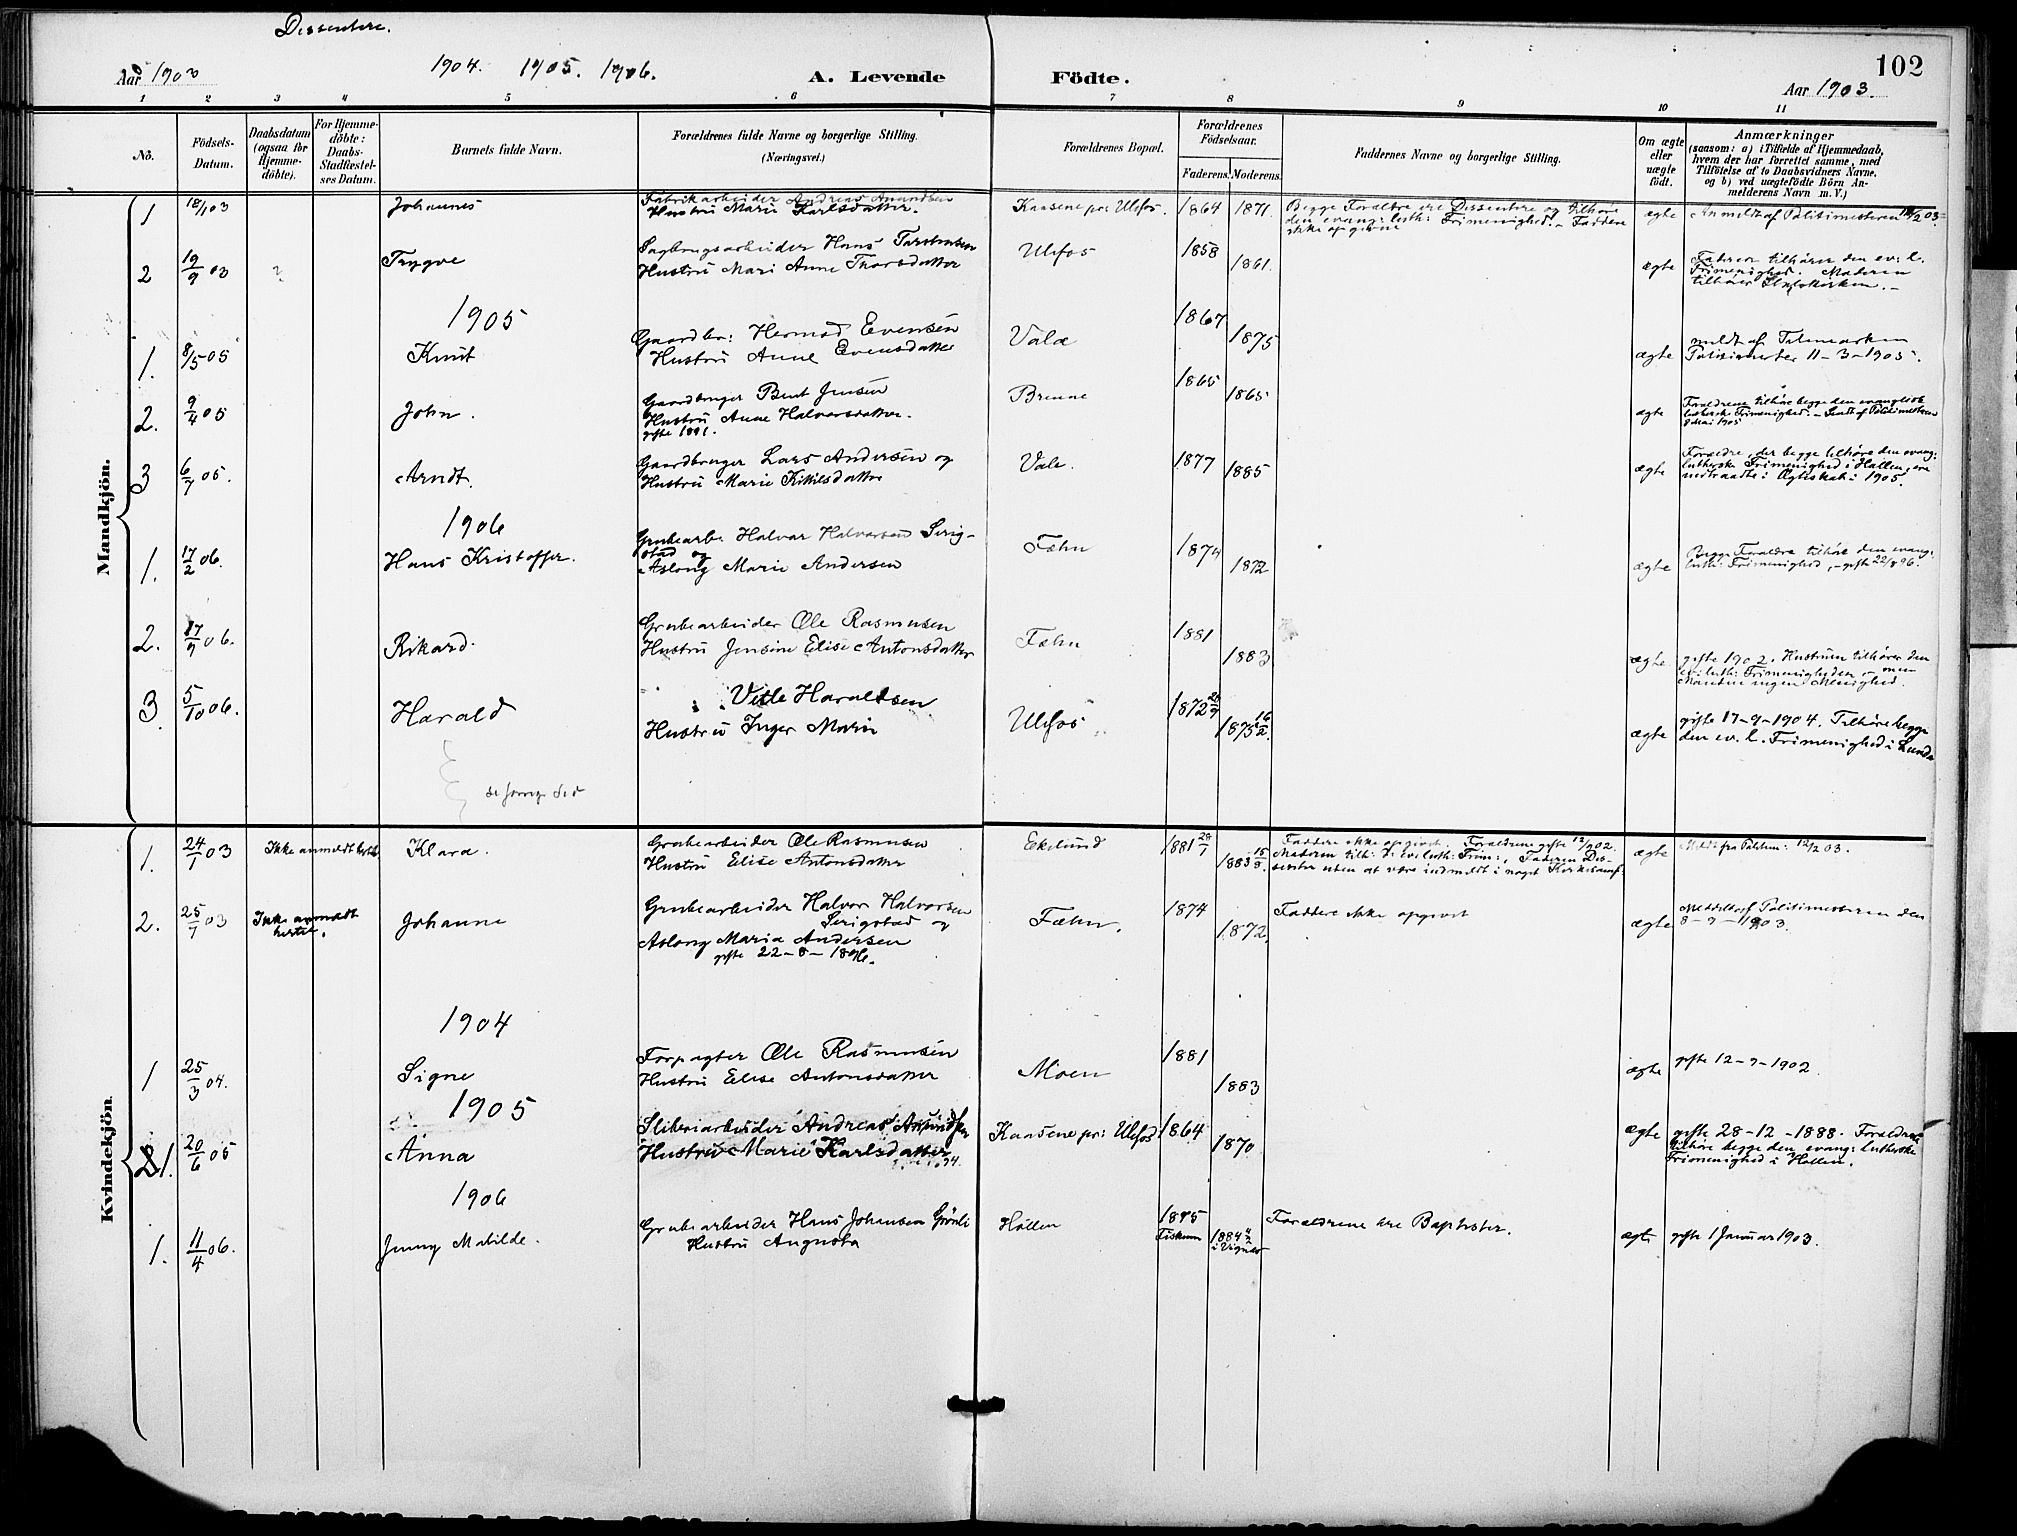 Dissentere.
Aar 1903
1904. 1905. 1906.
A. Levende Födte.
102
Aar 1903.
1 2 3 4 5 6 7 8 9 10 11
No.
Födsels-
Datum.
Daabsdatum
(ogsaa for
Hjemme-
döbte).
For Hjemme-
döbte:
Daabs-
Stadfæstel-
ses Datum.
Barnets fulde Navn.
Forældrenes fulde Navne og borgerlige Stilling.
(Næringsvei.)
Forældrenes Bopæl.
Forældrenes
Födselsaar.
Faderens. Moderens.
Faddernes Navne og borgerlige Stilling.
Om ægte
eller
uægte
födt.
Anmærkninger
(saasom: a) i Tilfælde af Hjemmedaab,
hvem der har forrettet samme, med
Tilföielse af to Daabsvidners Navne.
og b) ved uægtefödte Börn An-
melderens Navn m. V.)
Mandkjön.
1 18/1 03 Johannes
Fabrikarbeider Andreas Amundsen
Hustru Marie Karlsdatter.
Kaasene pr: Ulefos. 1864 1871.
Begge Forældre ere Dissentere og tilhöre
den evang: luth: Frimenighed. – Faddere
ikke opgivne
ægte
Anmeldt af Politimesteren 03.
2 19/9 03 Trygve
Sagbrugsarbeider Hans
Hustru Mari Anne Thorsdatter
Ulefos 1858 1861.
ægte
Faderen tilhörer den ev. l.
Frimenighed. Moderen
tilhörer Statskirken. –
1905
1. 8/5 05 Knut
Gaardbr: Hermod Evensen
Hustru Anne Evensdatter
Vala 1867 1875
ægte
meldt af Telemarken
Politimester 11-3-1905.
2. 9/4 05 John.
Gaardbruger Bent Jensen
Hustru Anne Halvorsdatter.
gifte 1891.
Brenne 1865 1865
ægte
Forældrene tilhöre begge den evangelisk
lutherske Frimenighed. – Sendt af Politimesteren
8 Mai 1905
3 6/7 05. Arndt.
Gaardbruger Lars Andersen og
Hustru Marie Kittilsdatter
Vale. 1877 1885
ægte
Forældre, der begge tilhöre den evang:
lutherske Frimenighed i Hollen, ere
indtraadte i Ægteskab i 1905.
1906
1. 17/2 06. Hans Kristoffer.
Grubearb. Halvor Halvorsen Serig-
stad og
Aslong Marie Andersen
Fæhn 1874 1872
ægte
Begge Forældre tilhöre den evang:
luth: Frimenighed, – gifte 22/8 96.
2. 17/9 06. Rikard.
Grubearbeider Ole Rasmusen
Hustru Jensine Elise Antonsdatter
Fæhn 1881 1883
ægte.
gifte 1902. Hustruen tilhörer den
ev. luth: Frimenigheden, men
Manden ingen Menighed.
3. 5/10 06. Harald
Vetle Haraldsen
Hustru Inger Marie
Ulefos 1872 1875 16/2.
ægte
gifte 17-9-1904. Tilhöre begge
den ev. l. Frimenighed i Lunde
se forrige Sid
Kvindekjön.
1. 24/1 03 Ikke anmeldt Klara.
Grubearbeider Ole Rasmusen
Hustru Elise Antonsdatter
Ekelund 1881 28/1 1883 15/9.
Faddere ikke opgivet. Forældrene gifte 12/7 02.
Moderen tilh: d: ev. luth: Frim:, Faderen Dis-
senter uten at være indmeldt i noget Kirkesamf.
ægte
Meldt fra Politim: 12/2 03.
2. 25/7 03 Ikke anmeldt
hertil.
Johanne
Grubearbeider Halvor Halvorsen
Serigstad og
Aslong Maria Andersen
gifte 22-8-1896.
Fæhn. 1874 1872.
Faddere ikke opgivet
ægte
Meddelt af Politimesteren den
8-9-1903.
1904
1 25/3 04. Signe
Forpagter Ole Rasmusen
Hustru Elise Antonsdatter
Moen 1881 1883
ægte gifte 12-7-1902.
1905
1. 20/6 05 Anna
Sliberiarbeider Andreas Amundsen
Hustru Marie Karlsdatter
Kaasene pr: Ulefos 1864 1870
ægte
gifte 28-12-1888. Forældrene
tilhöre begge den evang: lutherske
Frimenighed i Hollen.
1906
1. 11/4 06. Jenny Matilde.
Grubearbeider Hans Johansen Grönli
Hustru Augusta
Hollen 1875
Fiskum 1884
Forældrene ere Baptister.
ægte gifte 1 Januar 1903.